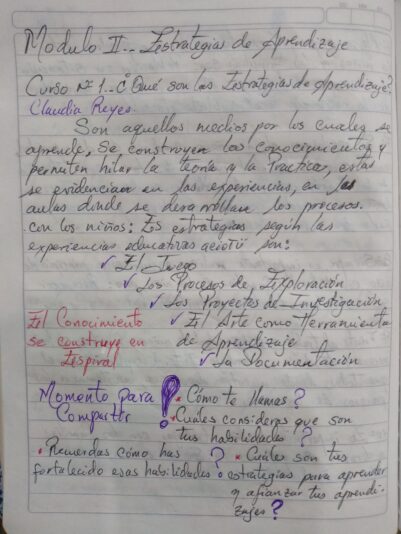 Modulo II.. Estrategias de Aprendizaje
Curso Nº 1.. ¿Qué son las Estrategias de Aprendizaje?
Claudia Reyes.
Son aquellos medios por los cuales se
aprende, se construyen los conocimientos y
permiten hilar la teoría y la Practica, estas
se evidencian en las experiencias, en las
aulas donde se desarrollan los procesos
con los niños: Las estrategias según las
experiencias educativas aeiotü son:
✓ El Juego
✓ Los Procesos de Exploración
✓ Los Proyectos de Investigación
✓ El Arte como Herramienta
de Aprendizaje
✓ La Documentación
El Conocimiento
se construye en
Espiral
Momento Para
Compartir !
• Cómo te llamas?
• Cuáles consideras que son
tus habilidades?
• Recuerdas cómo has
fortalecido esas habilidades?
• Cuáles son tus
estrategias para aprender
y afianzar tus aprendi-
zajes?